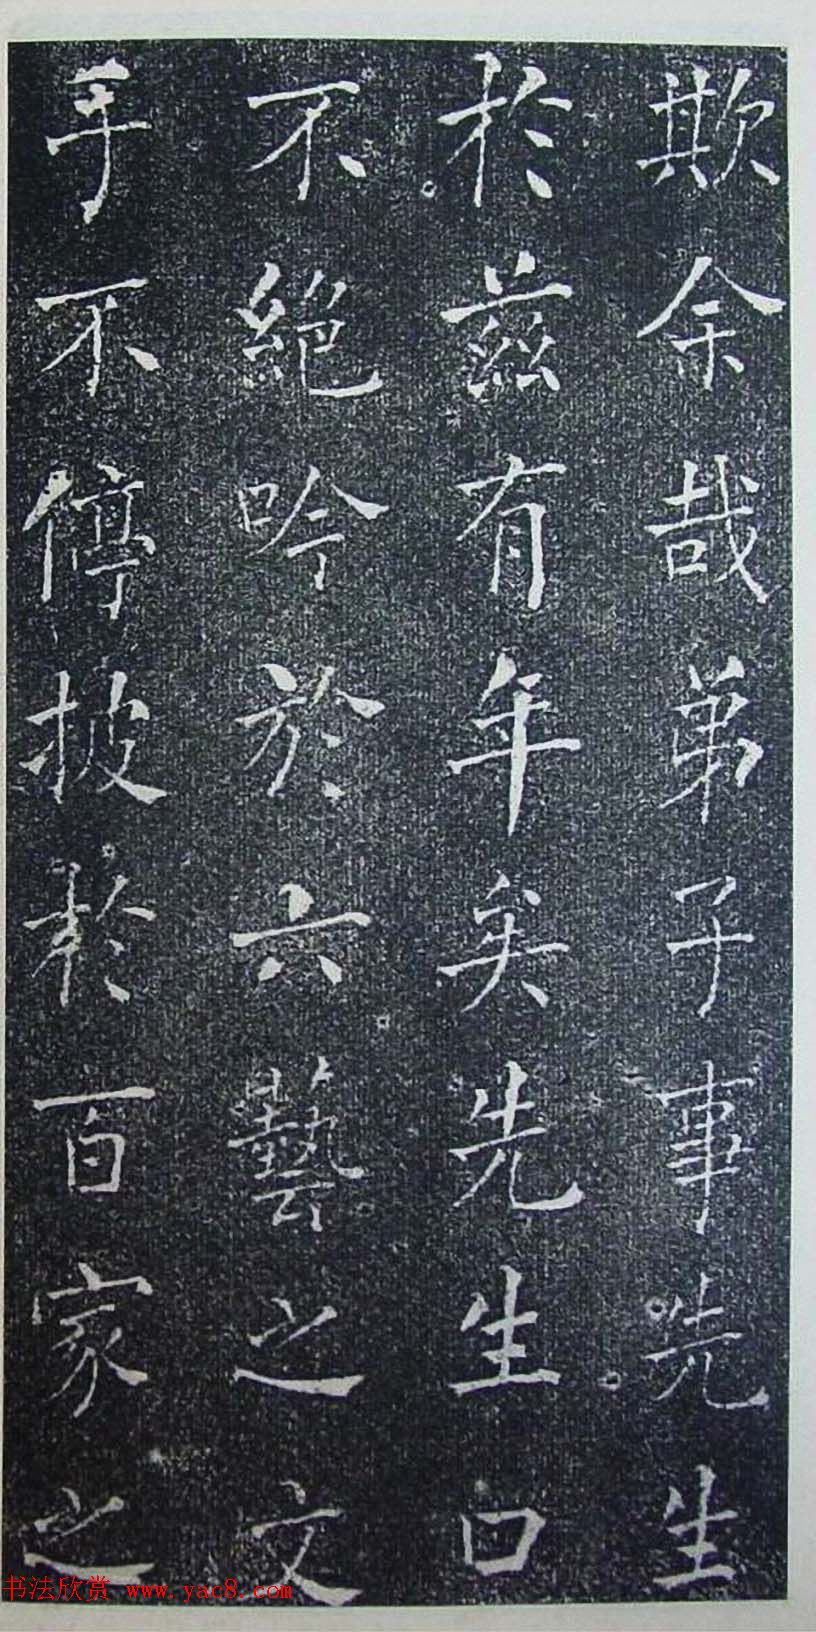 欺余哉弟子事先生
於兹有年矣先生曰
不絕吟於六藝之文
手不停披於百家之
书法欣赏 www.yac8.com